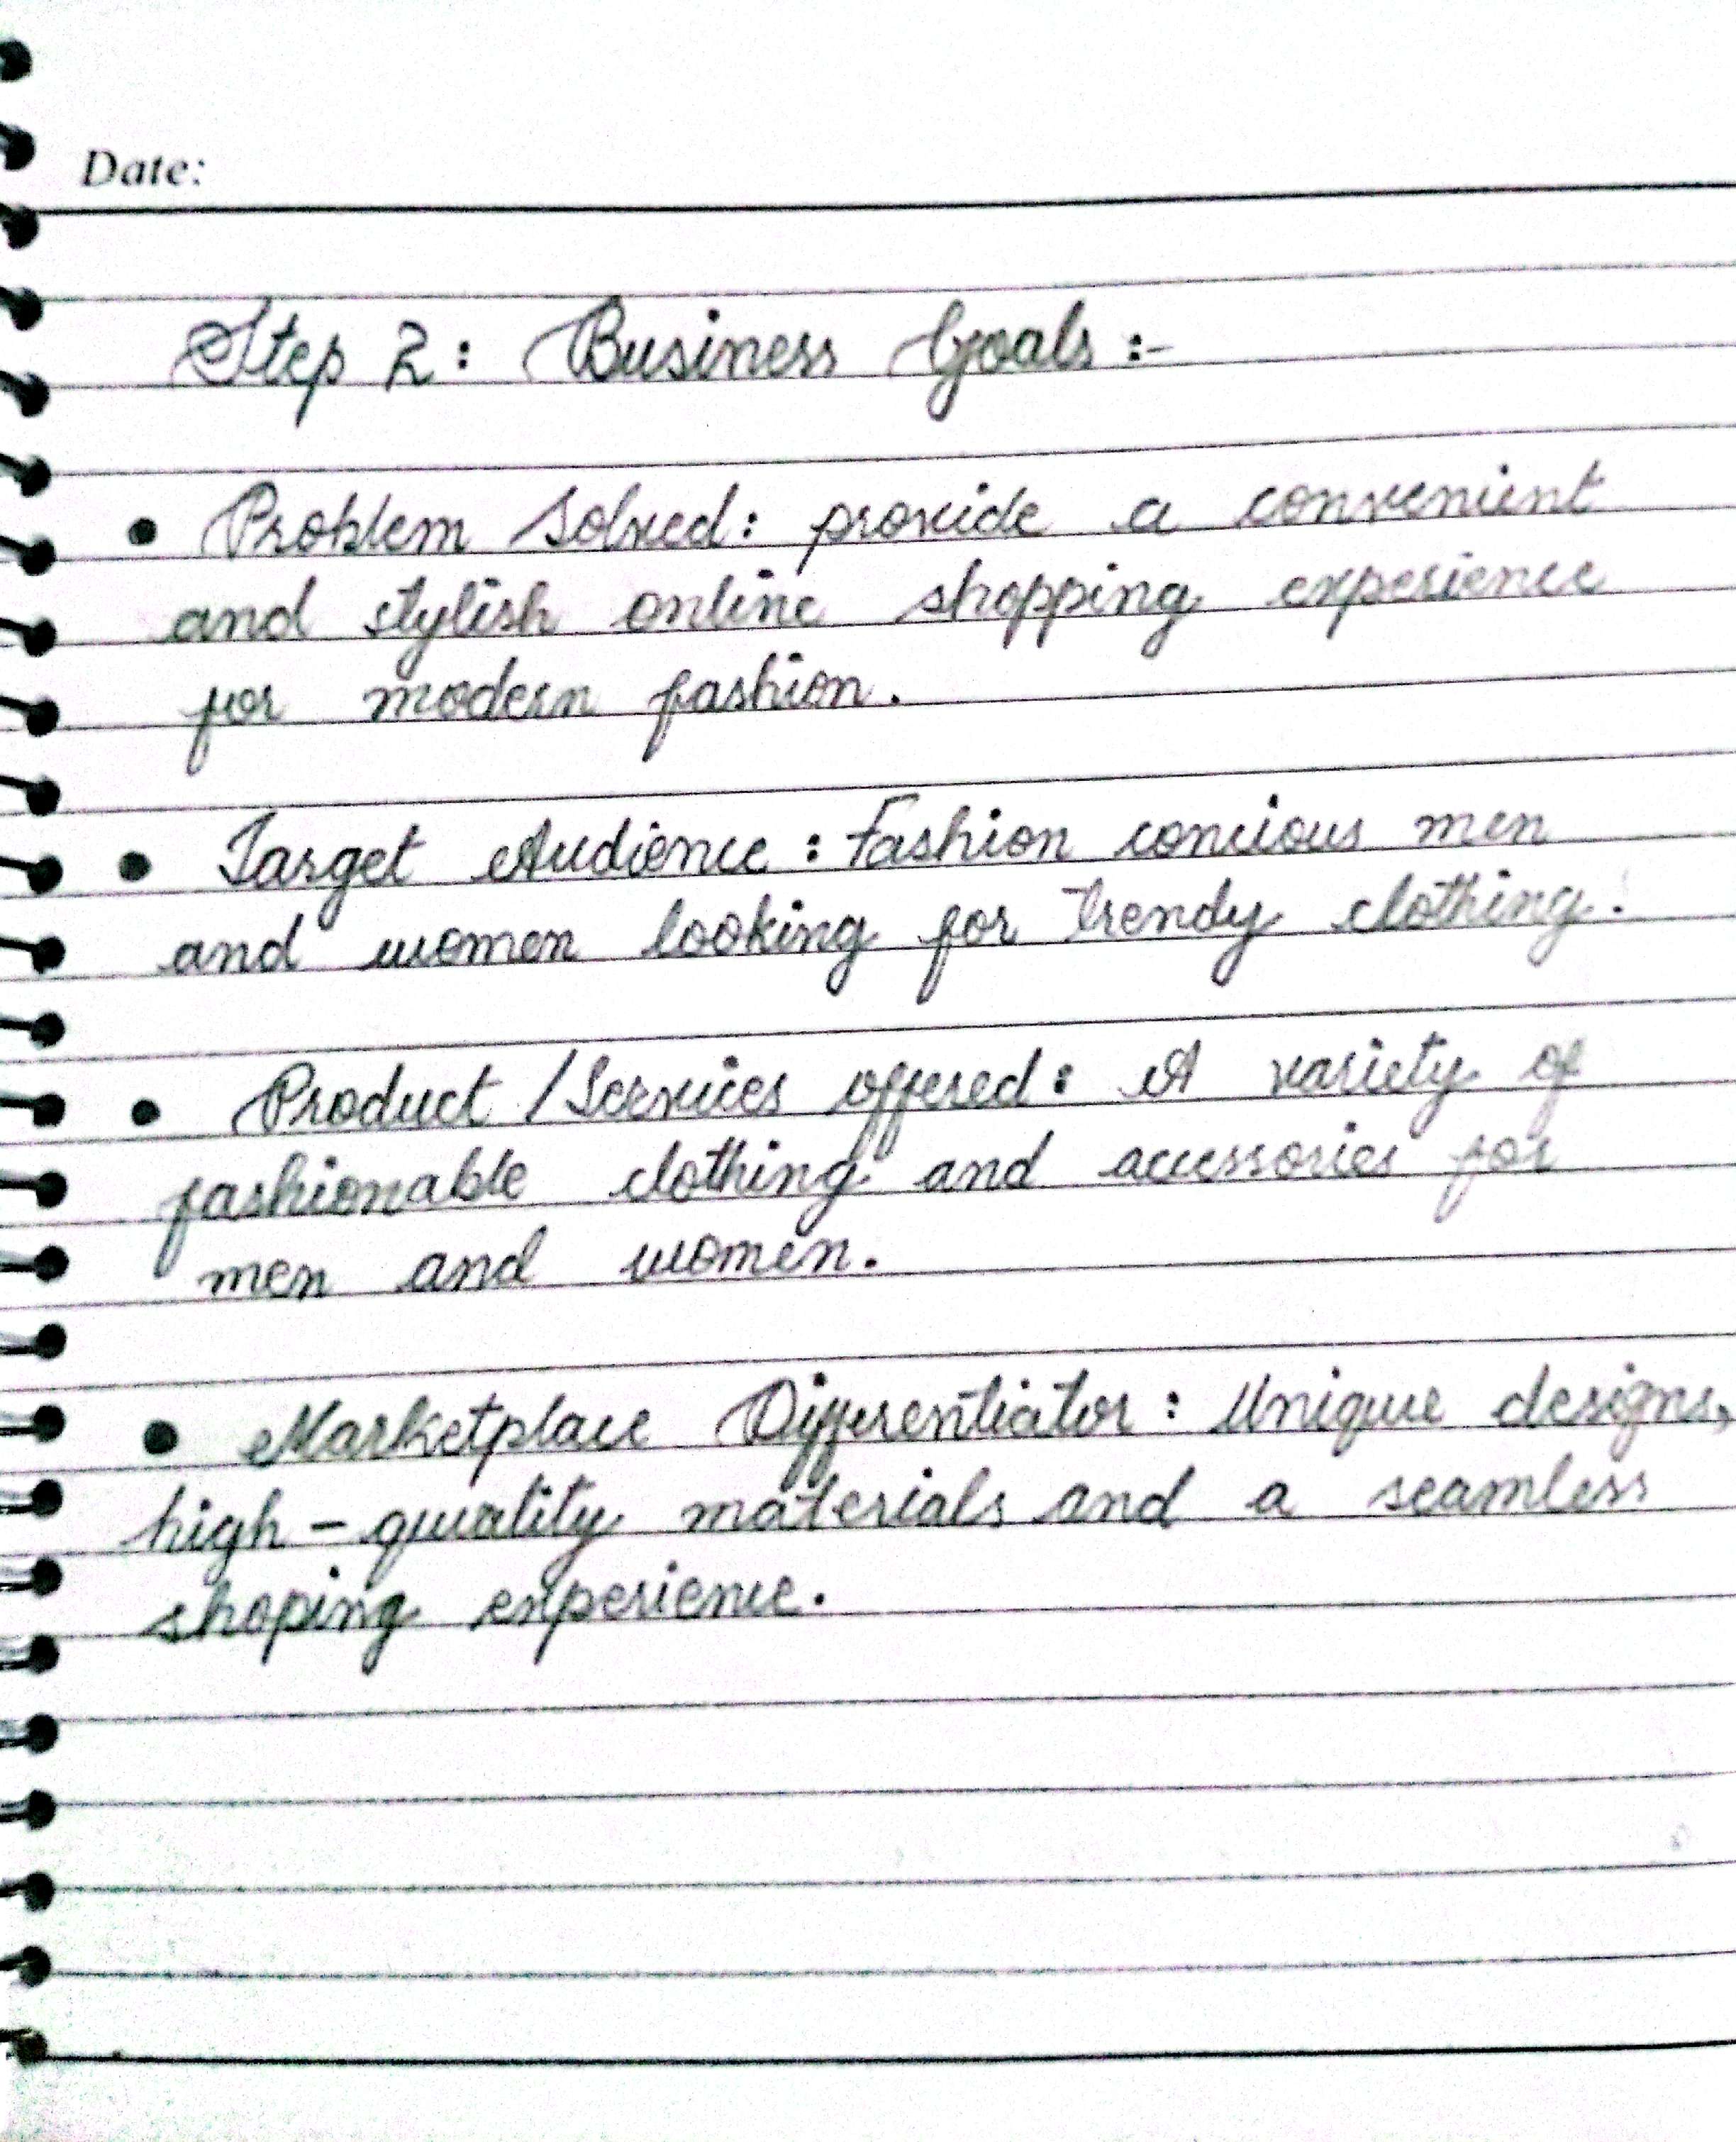 Date:
Step 2: Business Goals :-
• Problem Solved: provide a convenient
and stylish online shopping experience
for modern fashion.
• Target Audience : Fashion concious men
and women looking for trendy clothing.
• Product /Services offered: A variety of
fashionable clothing and accessories for
men and women.
• Marketplace Differentiator : Unique designs,
high-quality materials and a seamless
shoping experience.